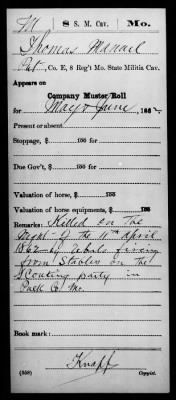 M | 8 S. M. Cav. | Mo.
Thomas
Pvt, Co. E, 8 Reg't Mo. State Militia Cav.
Appears on
Company Muster Roll
for May & June, 1862.
Present or absent
Stoppage, $ 100 for
Due Gov't, $ 100 for
Valuation of horse, $ 100
Valuation of horse equipments, $ 100
Remarks: Killed on the
night of the 11th April
1862 by rebels firing
from Stables on the
Scouting party in
Polk Co Mo.
Book mark:
Knapp
(358) Copyist.